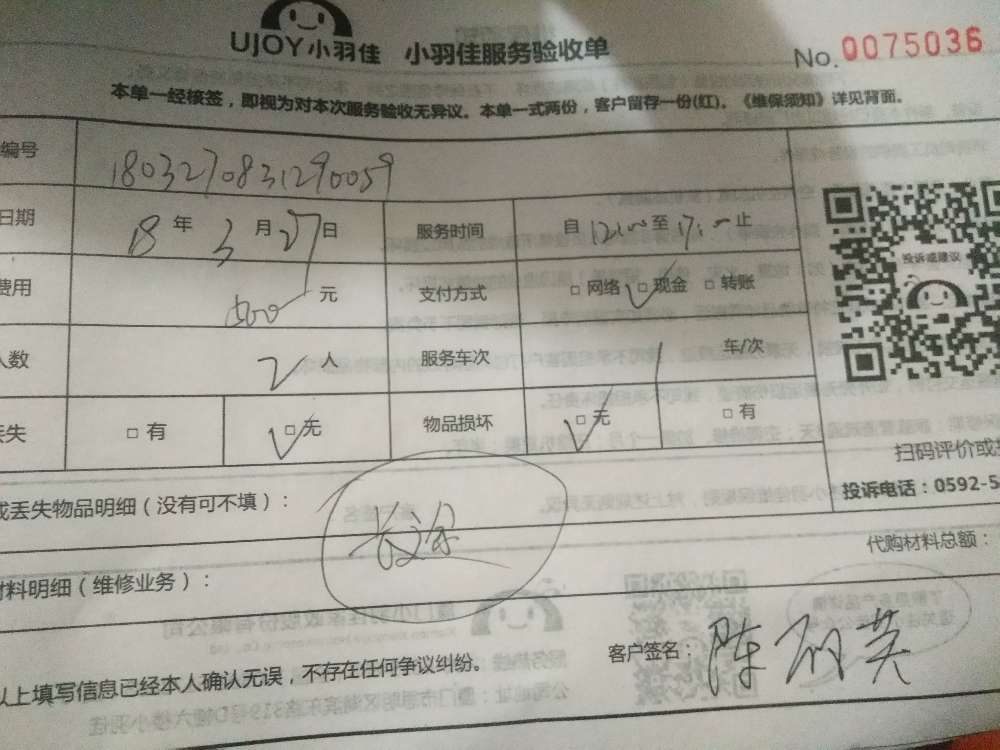 UJOY小羽佳 小羽佳服务验收单 No. 0075036
本单一经核签，即视为对本次服务验收无异议。本单一式两份，客户留存一份(红)。《维保须知》详见背面。
编号 1803270831290059
日期 18 年 3 月 27 日 服务时间 自 12:00 至 17:00 止
费用 500 元 支付方式 □ 网络 □ 现金 □ 转账
人数 2 人 服务车次 1 车/次
丢失 □ 有 □ 无 物品损坏 □ 无 □ 有
投诉或建议
扫码评价或
投诉电话：0592-5
或丢失物品明细（没有可不填）：
代购材料总额：
材料明细（维修业务）：
以上填写信息已经本人确认无误，不存在任何争议纠纷。
客户签名：陈 英